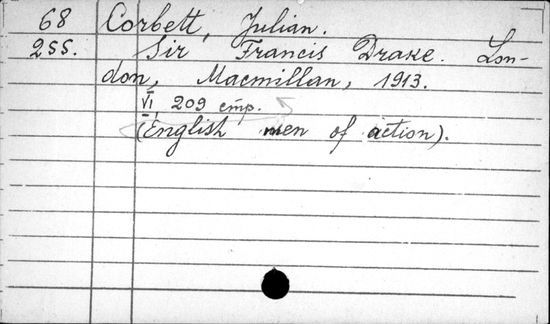 68 Corbett, Julian.
255. Sir Francis Drake. Lon-
don, Macmillan, 1913.
VI, 209 cmp.
(English men of action).